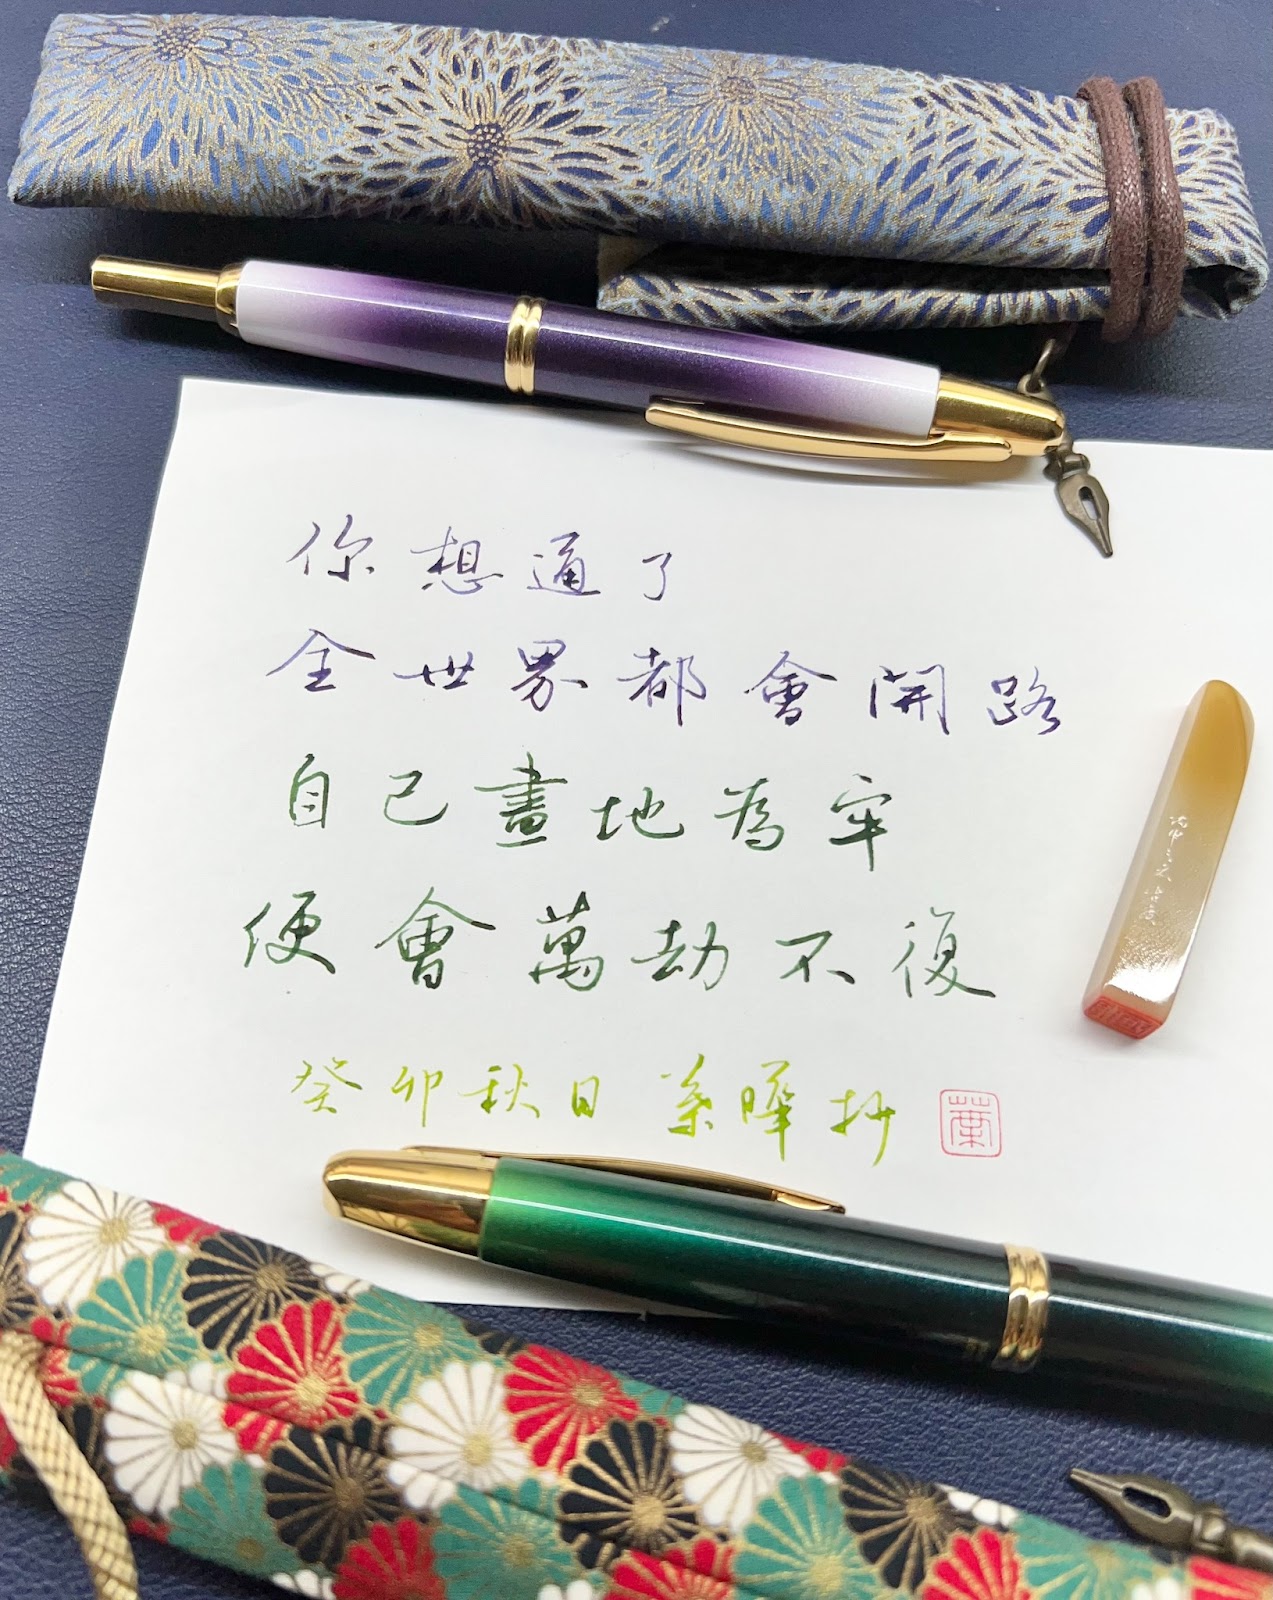 你想通了
全世界都會開路
自己畫地為牢
便會萬劫不復
癸卯秋日 葉曄抄
葉